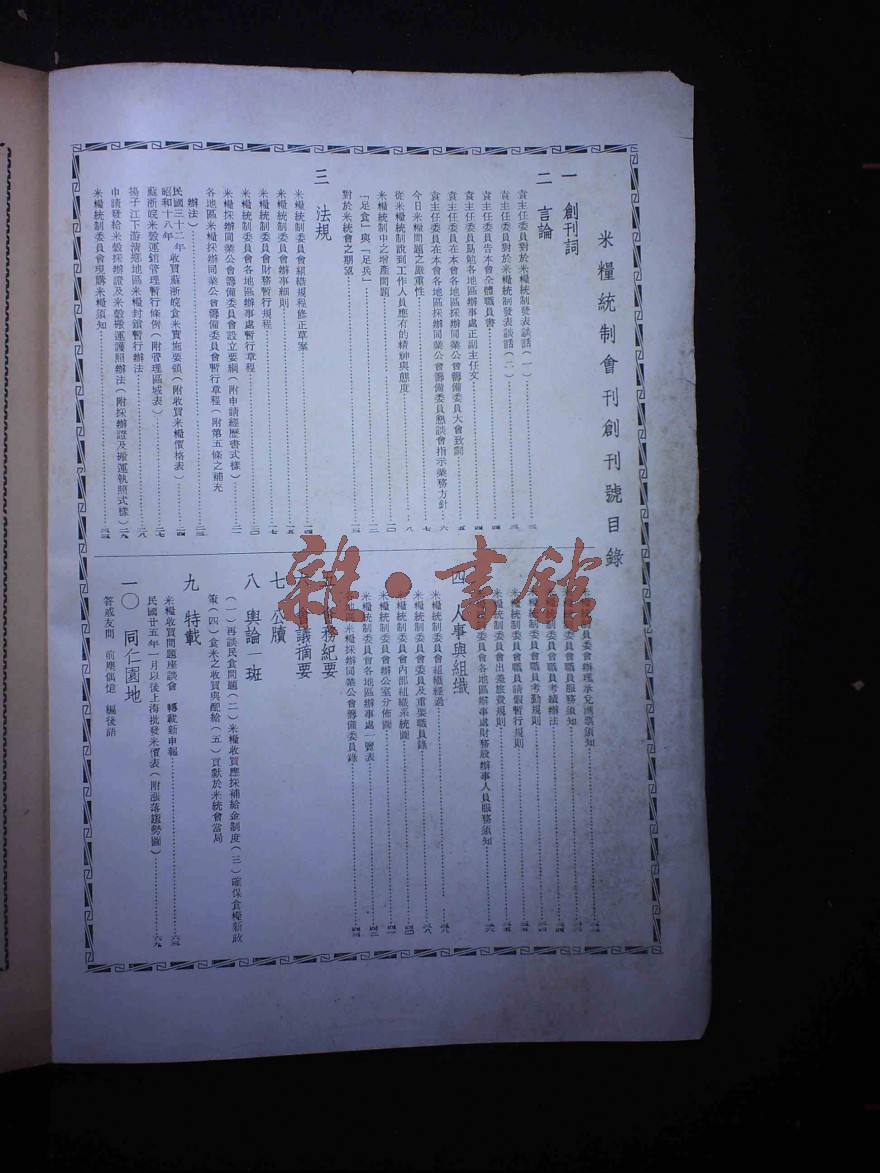 米糧統制會刊創刊號目錄
一 創刊詞
二 言論
袁主任委員對於米糧統制發表談話(一)
袁主任委員對於米糧統制發表談話(二)
袁主任委員告本會全體職員書
袁主任委員勗勉各地區辦事處正副主任文
袁主任委員在本會各地區採辦同業公會籌備委員大會致詞
袁主任委員在本會各地區採辦同業公會籌備委員懇談會指示業務方針
今日米糧問題之嚴重性
從米糧統制說到工作人員應有的精神與態度
米糧統制中之增產問題
「足食」與「足兵」
對於米統會之期望
三 法規
米糧統制委員會組織規程修正草案
米糧統制委員會辦事細則
米糧統制委員會財務暫行規程
米糧統制委員會各地區辦事處暫行章程
米糧採辦同業公會籌備委員會設立要綱(附申請經歷書式樣)
各地區米糧採辦同業公會籌備委員會暫行章程(附第五條之補充
辦法)
民國三十二年
昭和十八年
收買蘇浙皖食米實施要領(附收買米糧價格表)
蘇浙皖米穀運銷管理暫行條例(附管理區域表)
揚子江下游清鄉地區米糧封鎖暫行辦法
申請發給米糧採辦證及米穀搬運護照辦法(附採辦證及搬運執照式樣)
米糧統制委員會現購米糧須知
委會辦理承兌匯票須知
委員會職員服務須知
制委員會職員考績辦法
統制委員會職員考勤規則
米糧統制委員會職員請假暫行規則
米糧統制委員會出差旅費規則
委員會各地區辦事處財務股辦事人員服務須知
四 人事與組織
米糧統制委員會組織經過
米糧統制委員及重要職員錄
米糧統制委員會內部組織系統圖
米糧統制委員會辦公室分佈圖
米糧統制委員會各地區辦事處一覽表
地區米糧採辦同業公會籌備委員錄
五 會務紀要
六 會議摘要
七 公牘
八 輿論一斑
(一)再談民食問題(二)米糧收買應採補給金制度(三)確保食糧新政
策(四)食米之收買與配給(五)貢獻於米統會當局
九 特載
米糧收買問題座談會 轉載新申報 六三
民國廿五年一月以後上海批發米價表(附漲落趨勢圖) 六九
一〇 同仁園地
答或友問 前塵偶憶 編後語
雜·書館